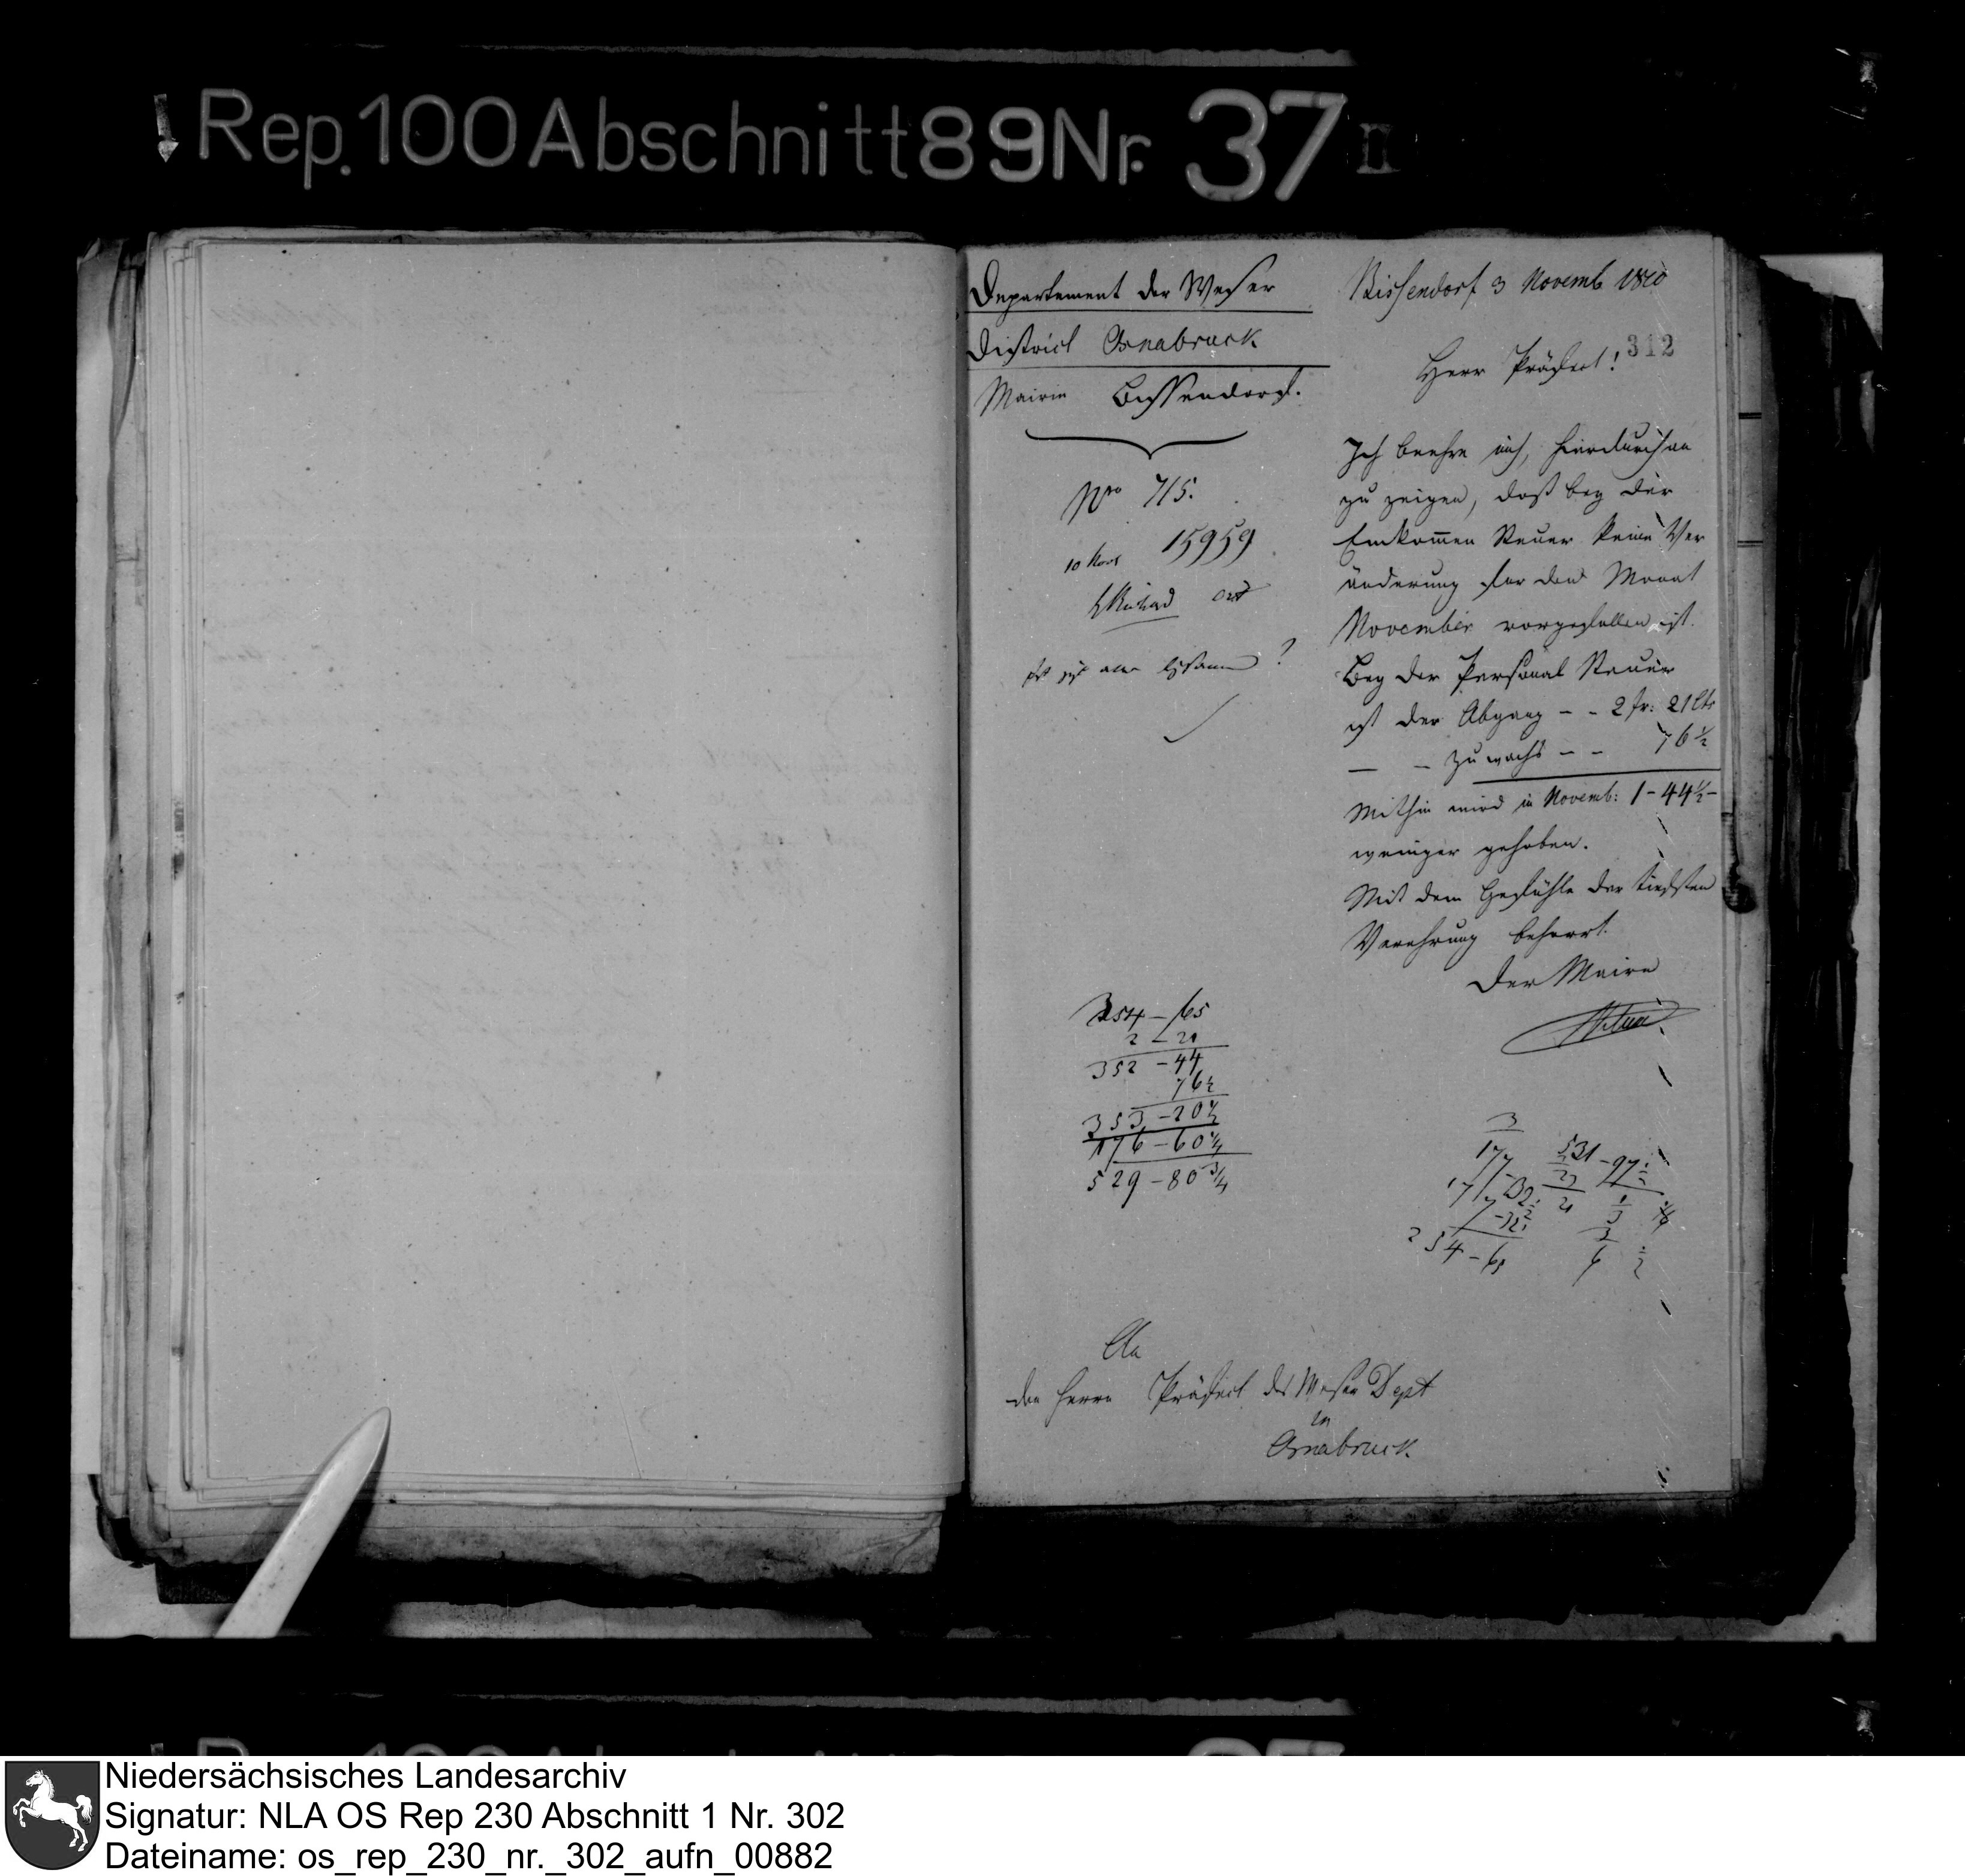 Rep. 100 Abschnitt 89 Nr. 37 II
Departement der Weser
District Osnabruck
Mairie Bissendorf.
Nro 715.
15959
10 Nov
Bissendorf 3 Novemb 1810
312
Herr Präfect!
Ich beehre mich, hierdurch an
zu zeigen, daß bey der
Einkom̄en Steuer keine Ver
änderung für den Monat
November vorgefallen ist.
Bey der Personal Steuer
ist der Abgang – – 2 fr: 21 Cts
— – Zuwachs – – 76½
Mithin wird in Novemb: 1 – 44½ –
weniger gehoben.
Mit dem Gefühle der tiefsten
Verehrung beharrt.
Der Maire
354 – 65
2 – 21
352 – 44
76½
353 – 20½
176 – 60¼
529 – 80¾
An
den Herrn Präfect des Weser Dept
in
Osnabruck
Niedersächsisches Landesarchiv
Signatur: NLA OS Rep 230 Abschnitt 1 Nr. 302
Dateiname: os_rep_230_nr._302_aufn_00882